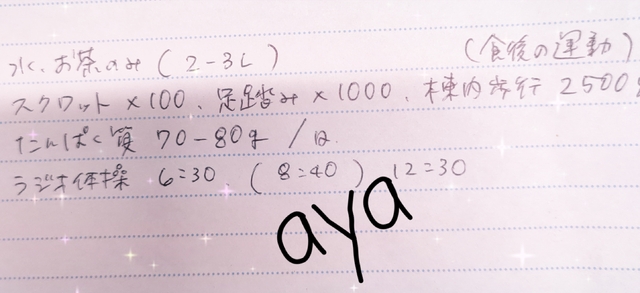 水、お茶のみ ( 2-3L )　　(食後の運動)
スクワット ×100、足踏み ×1000、棟内歩行 2500
たんぱく質 70-80g / 日
ラジオ体操 6:30 ( 8:40 ) 12:30
aya